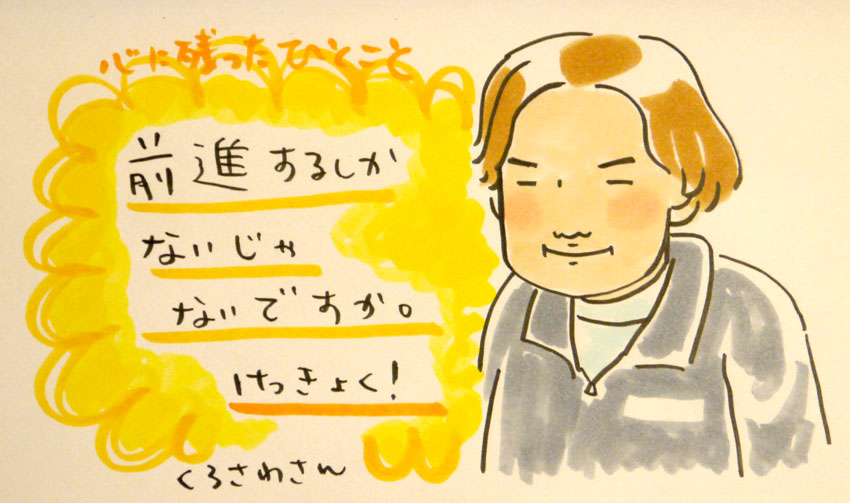 心に残ったひとこと
前進するしか
ないじゃ
ないですか。
けっきょく！
くろさわさん